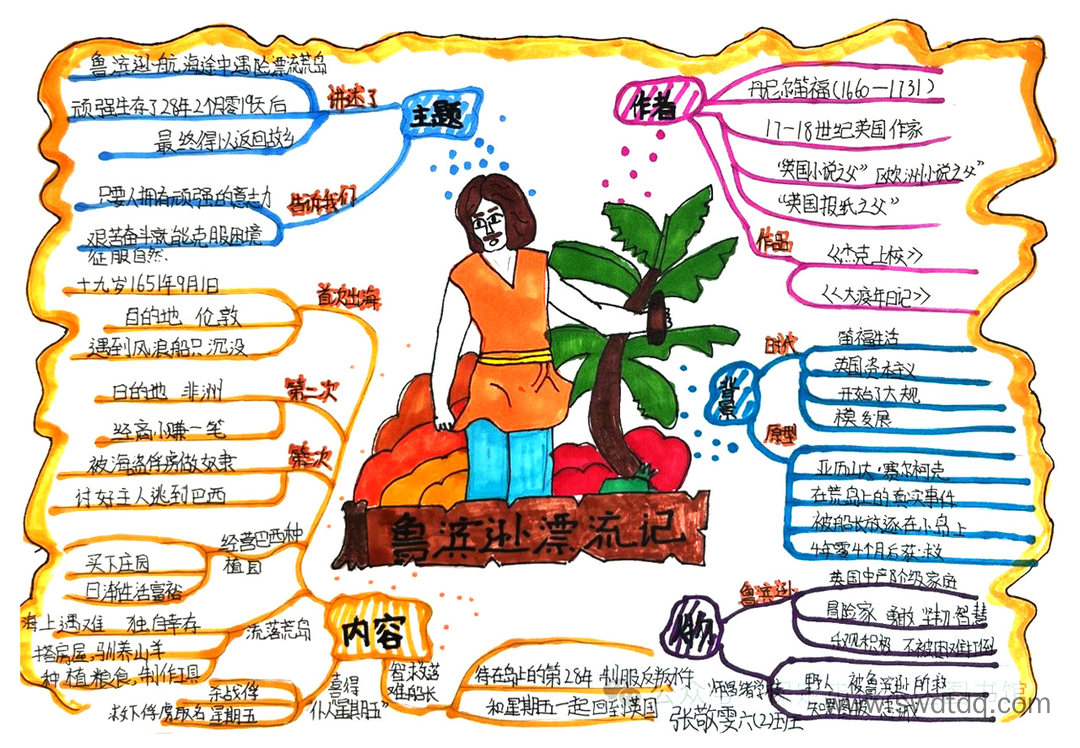 鲁滨逊航海途中遇险漂流荒岛
顽强生存了28年2个月零19天后
最终得以返回故乡
讲述了
主题
只要人拥有顽强的意志力
告诉我们
艰苦奋斗就能克服困境
征服自然.
作者
丹尼尔笛福(1660—1731)
17-18世纪英国作家
“英国小说之父” 欧洲小说之父”
“英国报纸之父”
作品
《杰克上校》
《大疫年日记》
十九岁1651年9月1日
首次出海
目的地 伦敦
遇到风浪船只沉没
目的地 非洲
第二次
经商小赚一笔
被海盗俘虏做奴隶
讨好主人逃到巴西
经营巴西种
植园
买下庄园
日渐生活富裕
海上遇难 独自幸存
流落荒岛
搭房屋,驯养山羊
种植粮食,制作工具
内容
喜得
仆人“星期五”
救下俘虏取名星期五
难船长
待在岛上的第28年 制服反叛
和星期五一起回到英国
背景
时代
笛福生活
英国资本主义
开始了大规
模发展
原型
亚历山大·赛尔柯克
在荒岛上的真实事件
被船长放逐在小岛上
4年零4个月后获救
人物
鲁滨逊
英国中产阶级家庭
冒险家 勇敢 坚韧 智慧
乐观积极 不被困难打倒
野人 被鲁滨逊所救
鲁滨逊漂流记
张敬雯六(2)班
www.swdtdq.com